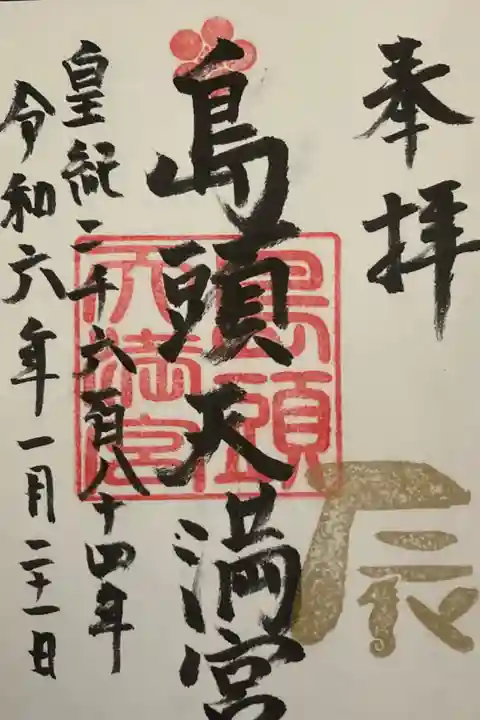 奉拝
島頭天満宮
島頭
天満宮
辰
皇紀二千六百八十四年
令和六年一月二十一日